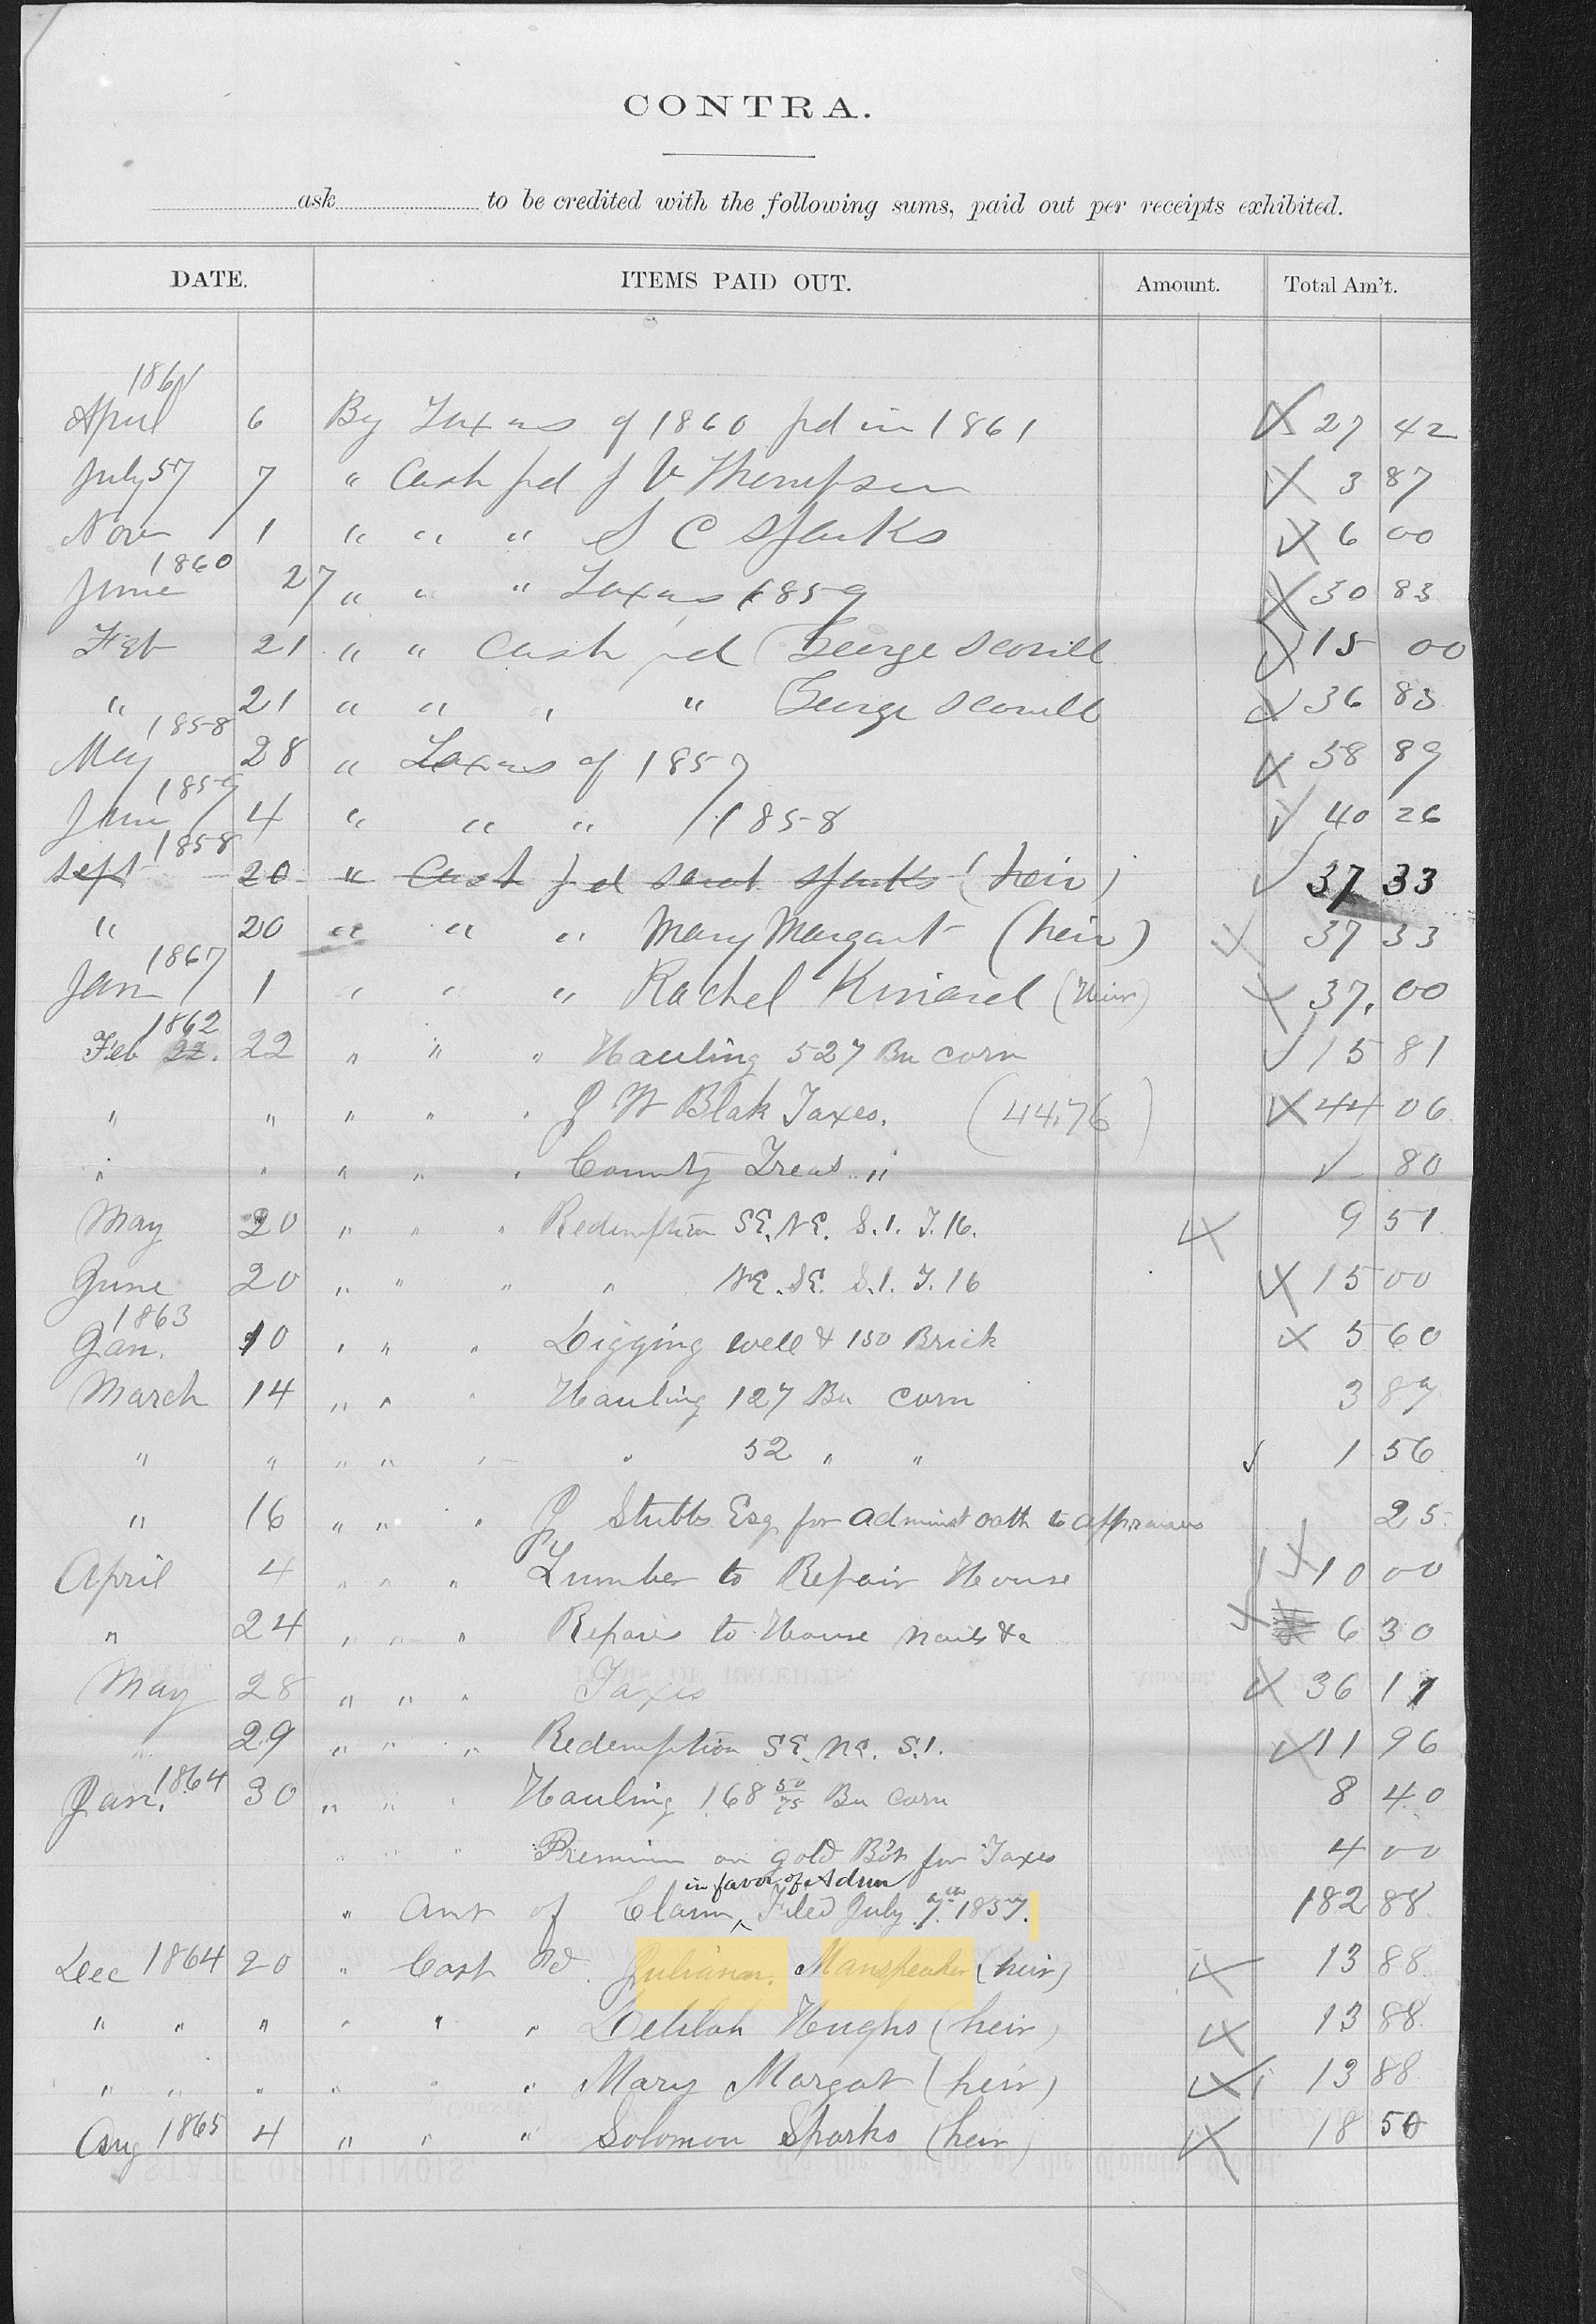 CONTRA.
ask to be credited with the following sums, paid out per receipts exhibited.
DATE. ITEMS PAID OUT. Amount. Total Am't.
1861
April 6 By Taxes of 1860 pd in 1861 27 42
July 57 7 " Cash pd J V Thompson 3 87
Nov 1 " " " S C Sparks 6 00
1860
June 27 " " " Taxes 1859 30 83
Feb 21 " " Cash pd George Scovill 15 00
" 21 " " " " George Scovill 36 83
1858
May 28 " Taxes of 1857 38 89
1859
June 4 " " " 1858 40 26
1858
Sept 20 " Cash pd Sarah Sparks (heir) 37 33
" 20 " " " Mary Margart (heir) 37 33
1867
Jan 1 " " " Rachel Kinared (Heir) 37.00
1862
Feb 22. 22 " " " Hauling 527 Bu corn 15 81
" " " " " J W Blak Taxes. (44.76) 44 06
" " " " " County Treas " 80
May 20 " " " Redemption SE. NE. S.1. T.16. 9 51
June 20 " " " " NE. SE. S.1. T.16 15 00
1863
Jan. 10 " " " Digging well & 150 Brick 5 60
March 14 " " " Hauling 127 Bu corn 3 87
" " " " " " 52 " " 1 56
" 16 " " " J Stubbs Esq for administ oath to appraisers 25
April 4 " " " Lumber to Repair House 10 00
" 24 " " " Repairs to House nails &c 6 30
May 28 " " " Taxes 36 17
" 29 " " " Redemption SE. NE. S.1. 11 96
1864
Jan. 30 " " " Hauling 168 50/75 Bu corn 8 40
" " " Premium on gold Bot for Taxes 4 00
in favor of Admr
" Amt of Claim ^ Filed July 7th 1857. 182 88
Dec 1864 20 " Cash Pd. Juliann. Manspeaker (heir) 13 88
" " " " " " Delilah Hughs (heir) 13 88
" " " " " " Mary Margat (heir) 13 88
Aug 1865 4 " " " Solomon Sparks (heir) 18 50